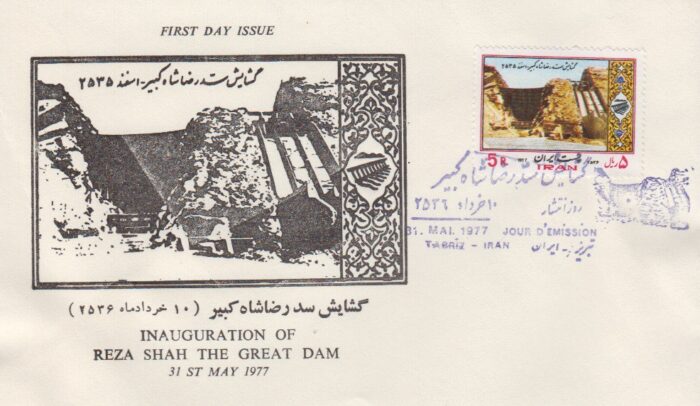 FIRST DAY ISSUE
گشایش سد رضاشاه کبیر - اسفند ۲۵۳۵
گشایش سد رضاشاه کبیر (۱۰ خردادماه ۲۵۳۶)
INAUGURATION OF
REZA SHAH THE GREAT DAM
31 ST MAY 1977
گشایش سد رضاشاه کبیر - اسفند ۲۵۳۵
5R پست ایران ۵ ریال
IRAN
گشایش سد رضاشاه کبیر
۱۰ خرداد ۲۵۳۶ روز انتشار
31. MAI. 1977 JOUR D'EMISSION
TABRIZ - IRAN تبریز - ایران